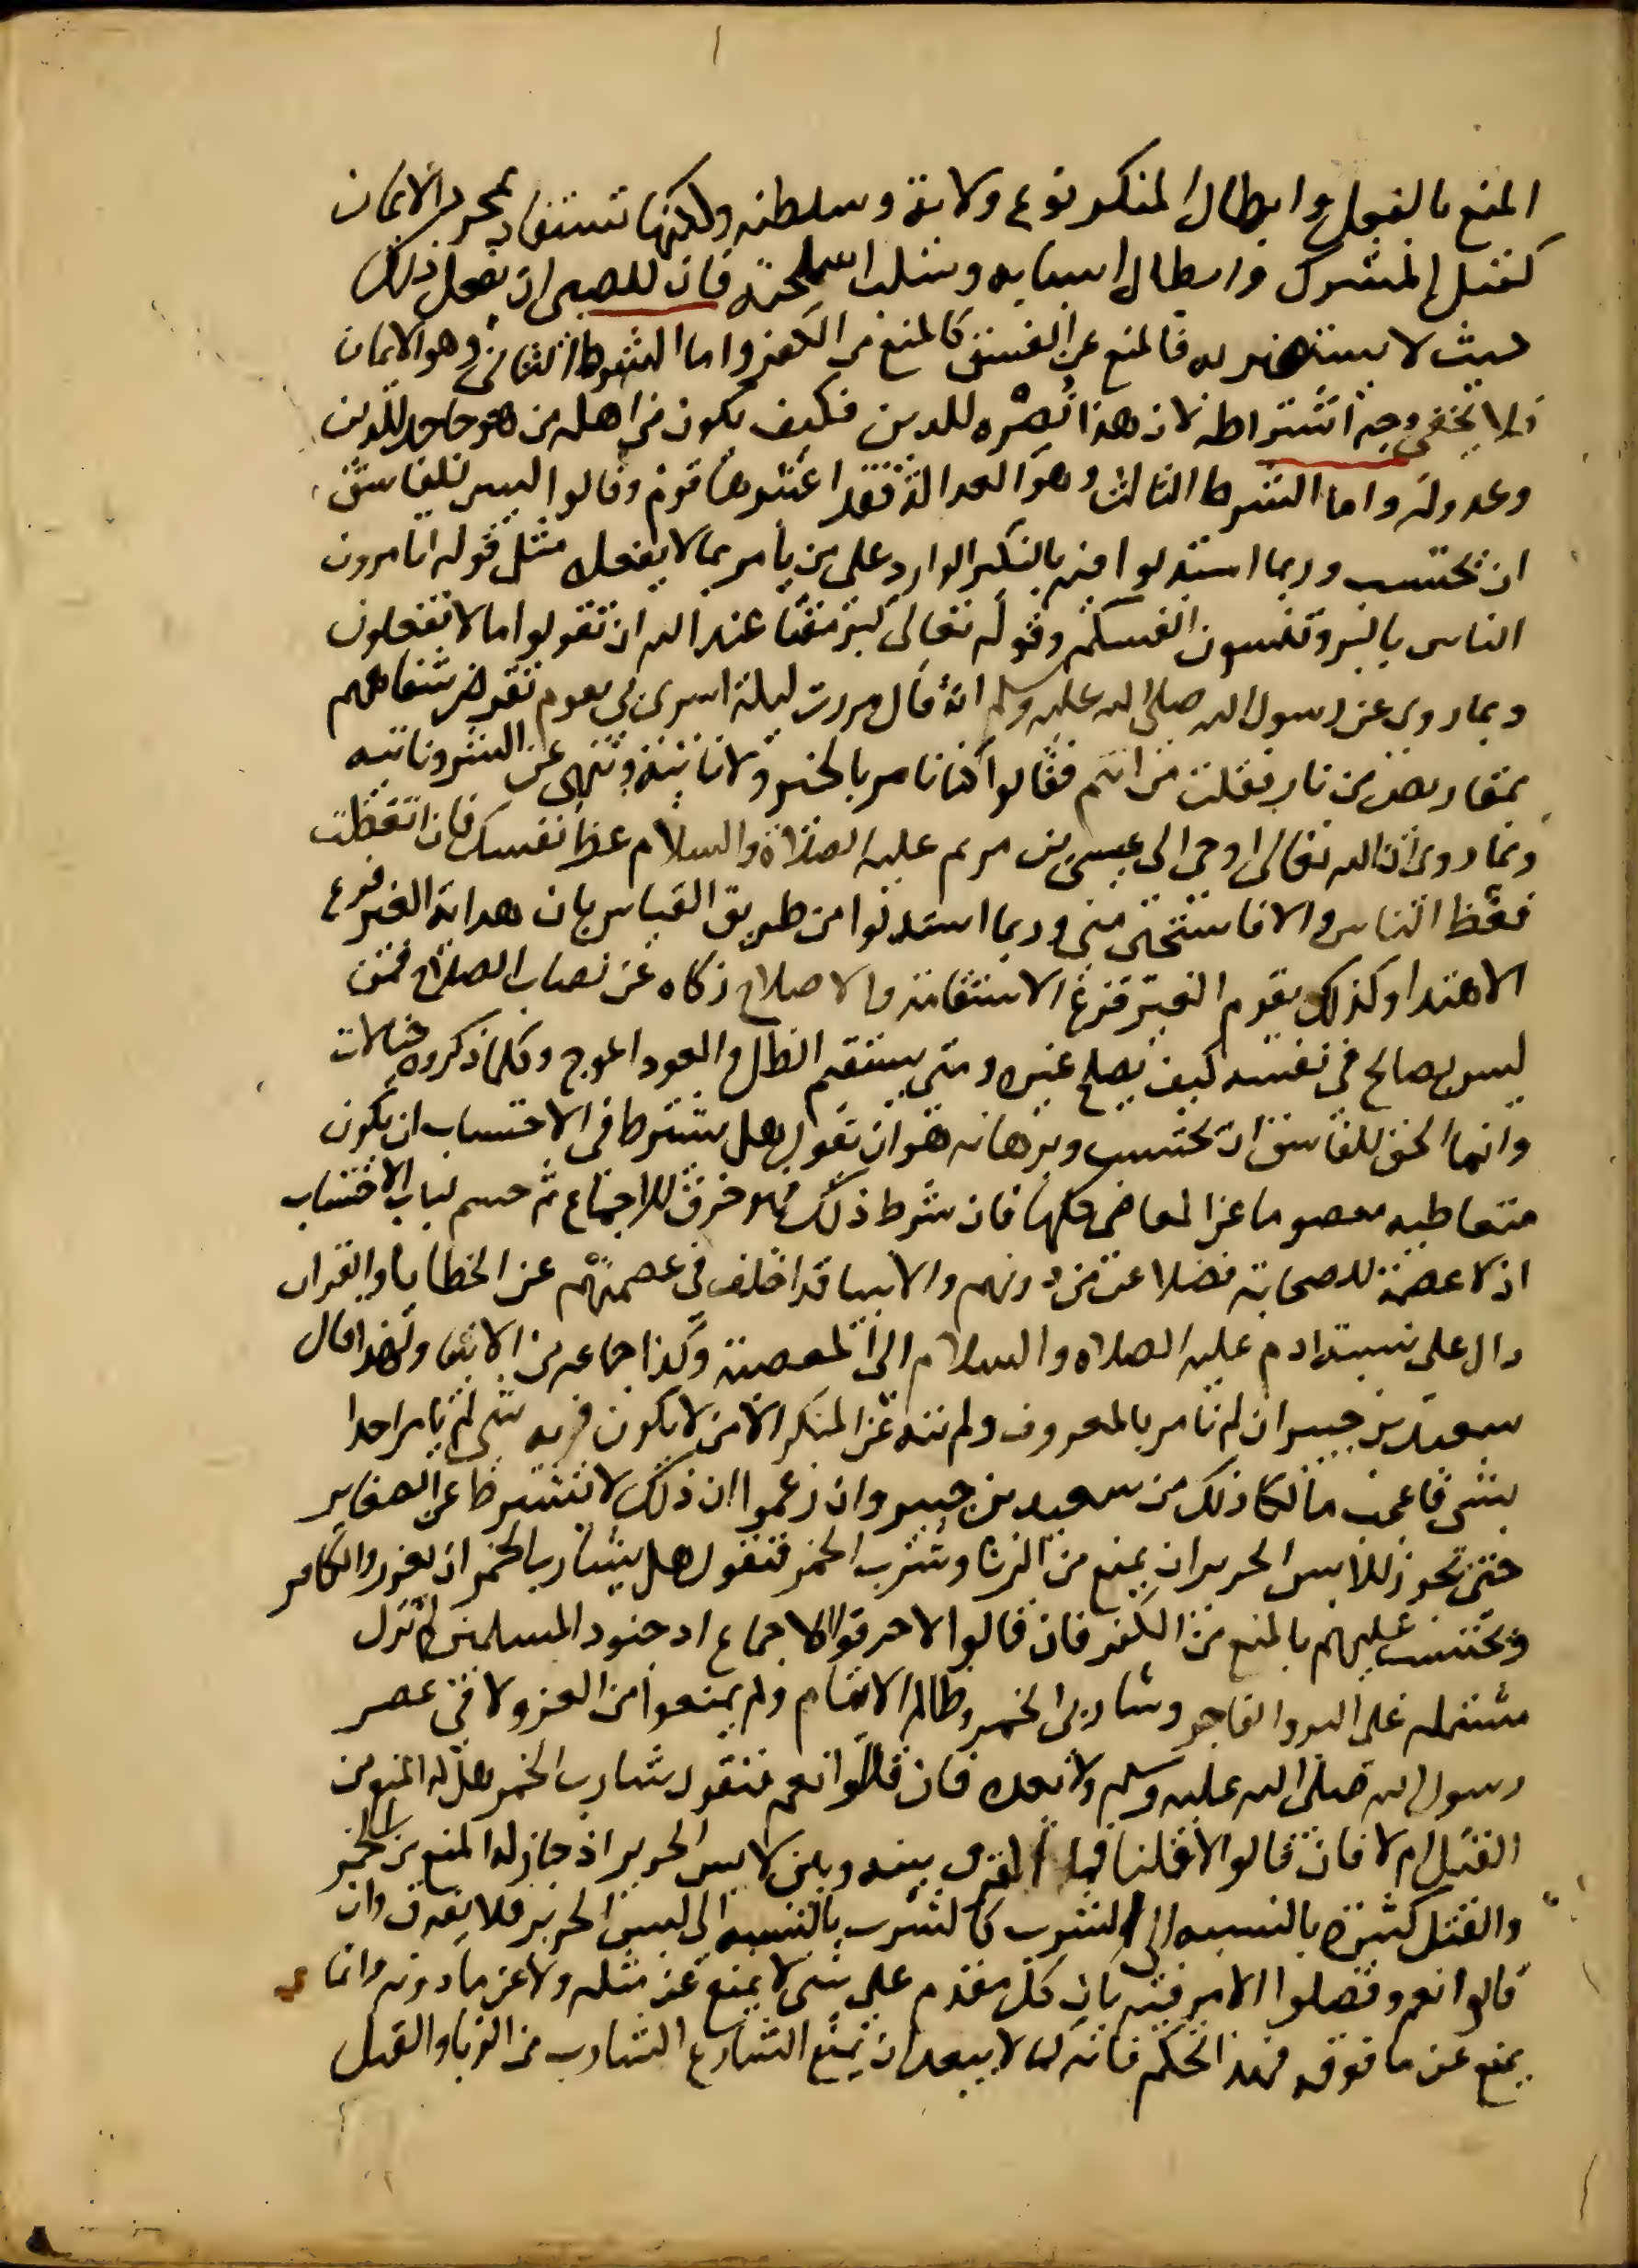 المنع بالفعل وابطال المنكر نوع ولاية وسلطنه ولكنها تستفاد بمجرد الايمان
كقتل المشرك وابطال اسبابه وسلب اسلحته فان للصبي ان يفعل ذلك
حيث لا يستضر به فالمنع عن الفسق كالمنع من الكفر واما الشرط الثاني وهو الايمان
فلا يخفى وجه اشتراطه لان هذا نصره للدين فكيف يكون من اهله من هو جاحد للدين
وعدو له واما الشرط الثالث وهو العدالة فقد اعتبرها قوم وقالوا ليس للفاسق
ان يحتسب وربما استدلوا فيه بالنكير الوارد على من يأمر بما لا يفعله مثل قوله اتامرون
الناس بالبر وتنسون انفسكم وقوله تعالى كبر مقتا عند الله ان تقولوا ما لا تفعلون
وبما روى عن رسول الله صلى الله عليه وسلم انه قال مررت ليلة اسرى بي بقوم تقرض شفاههم
بمقاريض من نار فقلت من انتم فقالوا كنا نامر بالخير ولا ناتيه وننهى عن الشر وناتيه
وبما روى ان الله تعالى اوحى الى عيسى بن مريم عليه الصلاة والسلام عظ نفسك فان اتعظت
فعظ الناس والا فاستحى منى وربما استدلوا من طريق القياس بان هداية الغير فرع
الاهتدا وكذلك تقويم الغير فرع الاستقامة والاصلاح زكاه عن نصاب الصلاح فمن
ليس بصالح في نفسه كيف يصلح غيره ومتى يستقيم الظل والعود اعوج وكلما ذكروه خيالات
وانما الحق للفاسق ان يحتسب وبرهانه هو ان نقول هل يشترط في الاحتساب ان يكون
متعاطيه معصوما عن المعاصي كلها فان شرط ذلك فهو خرق للاجماع ثم حسم لباب الاحتساب
اذ لا عصمة للصحابة فضلا عمن دونهم والانبيا قد اختلف في عصمتهم عن الخطايا والقران
دال على نسبة ادم عليه الصلاه والسلام الى المعصية وكذا جماعه من الانبيا ولهذا قال
سعيد بن جبير ان لم نامر بالمعروف ولم ننه عن المنكر الا من لا يكون فيه شي لم يامر احدا
بشي فاعجب مالكا ذلك من سعيد بن جبير وان زعموا ان ذلك لا يشترط عن الصغاير
حتى يجوز للابس الحرير ان يمنع من الزنا وشرب الخمر فنقول هل لشارب الخمر ان يغزو الكافر
ويحتسب عليهم بالمنع من الكفر فان قالوا لا خرقوا الاجماع اذ جنود المسلمين لم تزل
مشتمله على البر والفاجر وشاربى الخمر وظالم الايتام ولم يمنعوا من الغزو لا في عصر
رسول الله صلى الله عليه وسلم ولا بعده فان قالوا نعم فنقول شارب الخمر هل له المنع من
القتل ام لا فان قالوا لا قلنا فما الفرق بينه وبين لابس الحرير اذ جاز له المنع من الخمر
والقتل كبيرة بالنسبه الى الشرب كالشرب بالنسبه الى لبس الحرير فلا يفرق وان
قالوا نعم وفصلوا الامر فيه بان كل مقدم على شي لا يمنع عن مثله ولا عن ما دونه وانما
يمنع عن ما فوقه فهذا تحكم فانه كما لا يبعد ان يمنع الشارع الشارب من الزنا والقتل